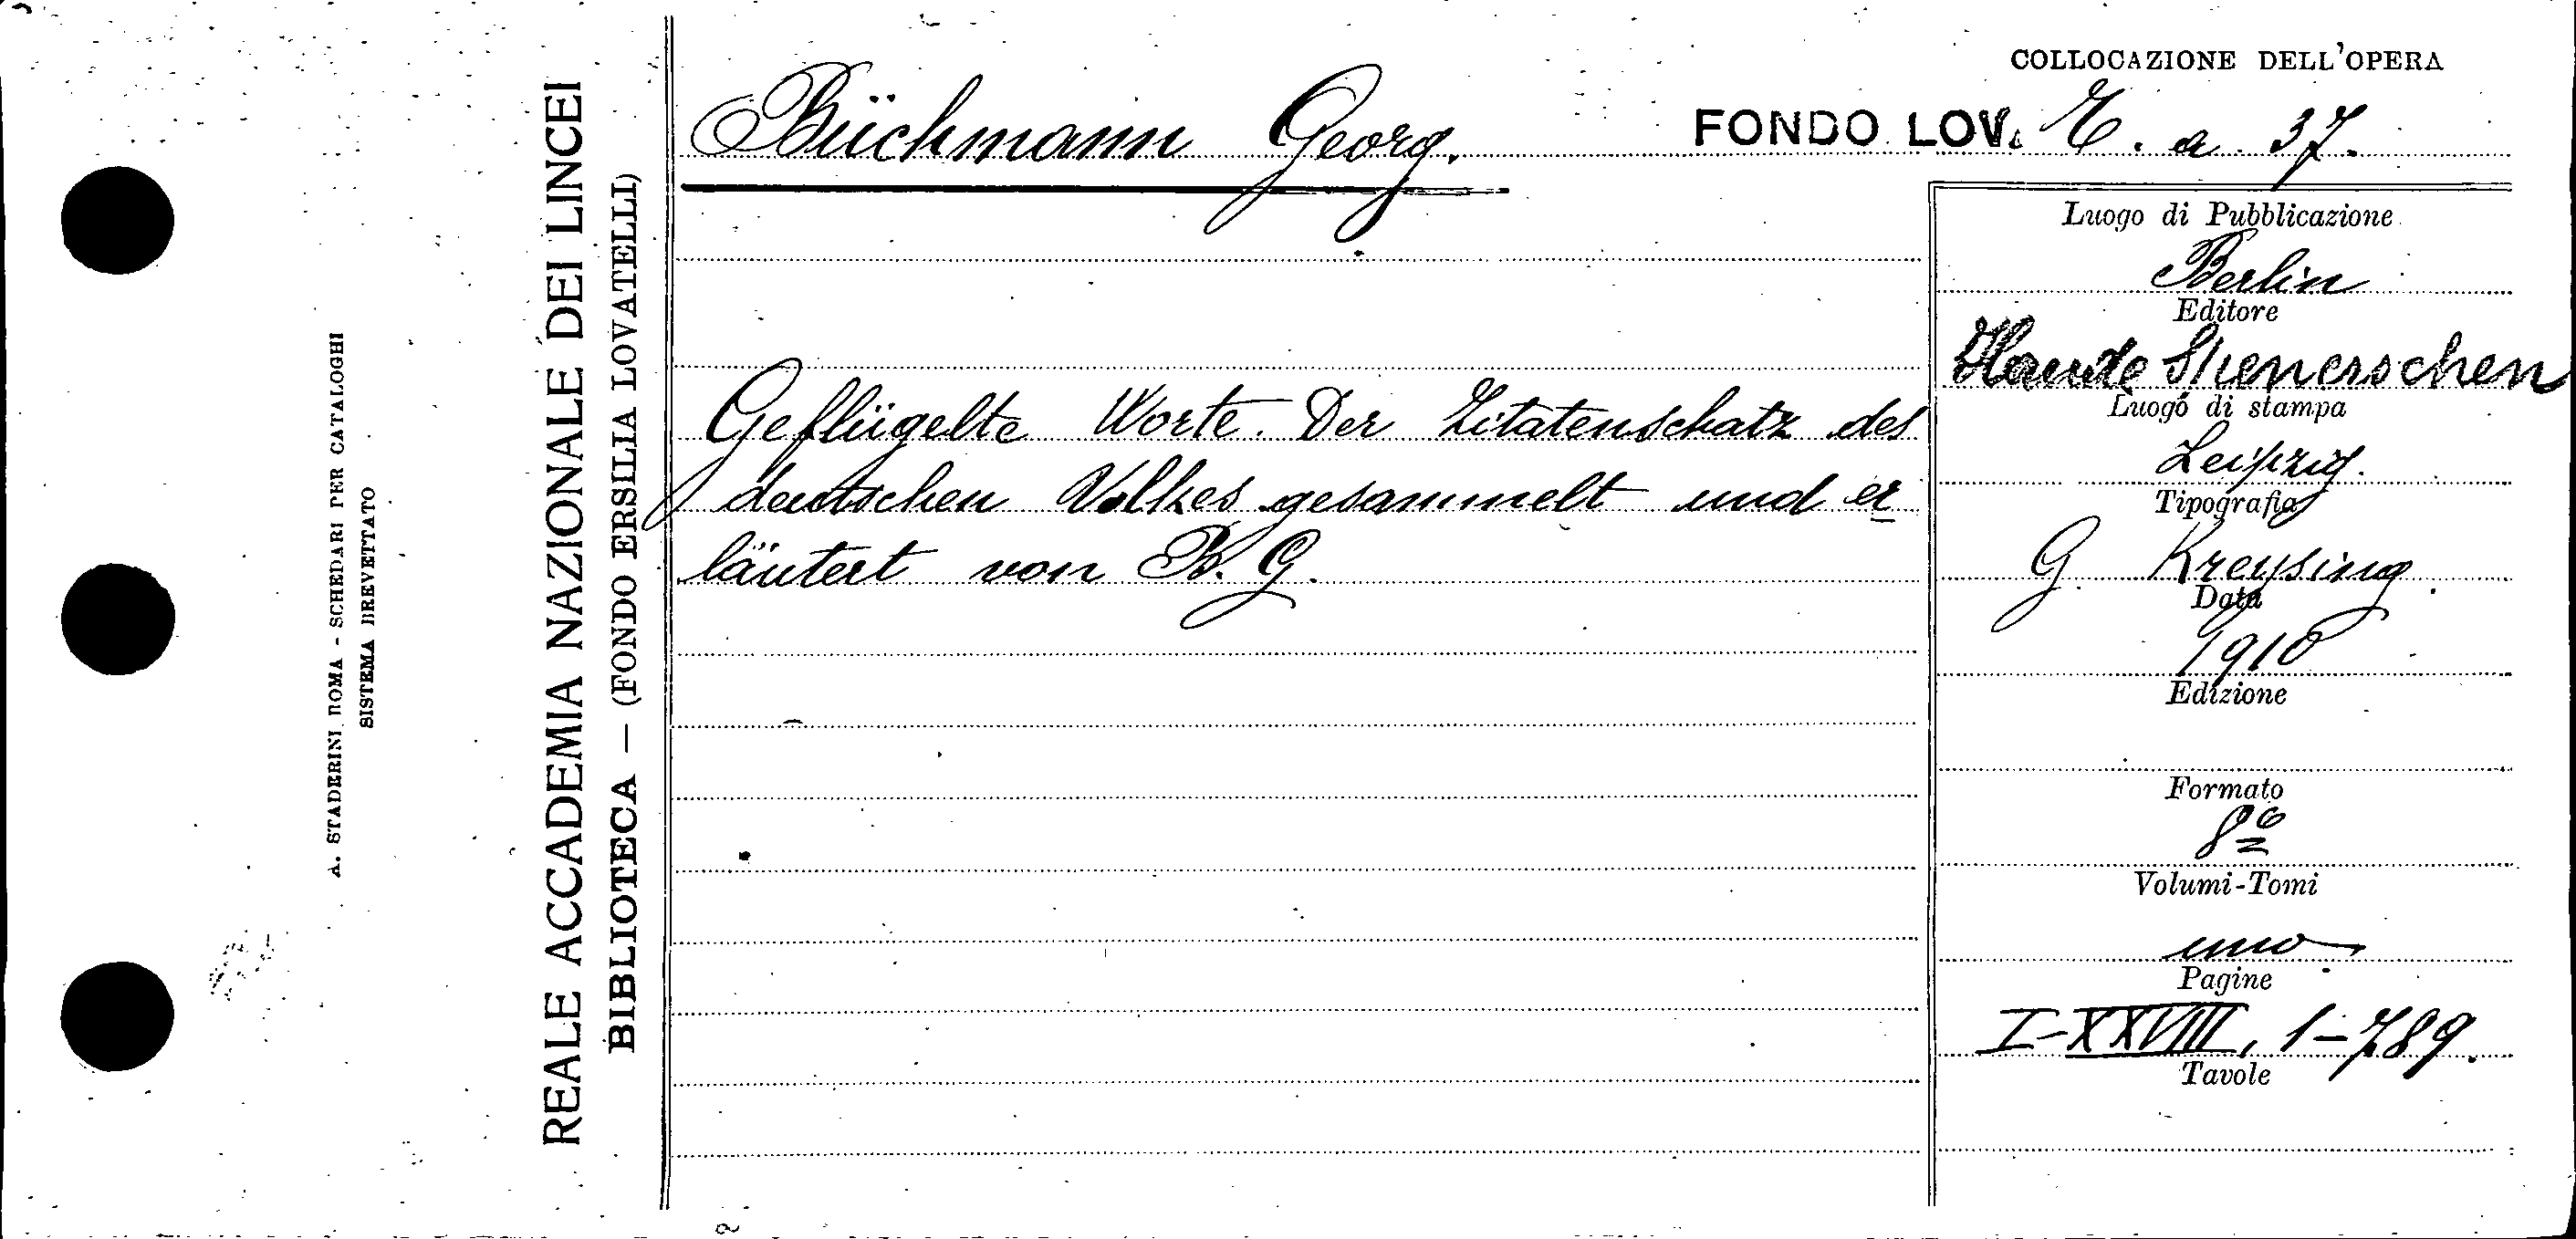 COLLOCAZIONE DELL'OPERA
Büchmann Georg.
FONDO LOV. E. a. 37.
Luogo di Pubblicazione
Berlin
Editore
Haude Spenerschen
Luogo di stampa
Leipzig.
Tipografia
G. Kreysing.
Data
1910
Edizione
Formato
8º
Volumi-Tomi
uno
Pagine
I-XXVIII, 1-789.
Tavole
Geflügelte Worte. Der Zitatenschatz des
deutschen Volkes gesammelt und er
läutert von B. G.
REALE ACCADEMIA NAZIONALE DEI LINCEI
BIBLIOTECA — (FONDO ERSILIA LOVATELLI)
A. STADERINI ROMA - SCHEDARI PER CATALOGHI
SISTEMA BREVETTATO